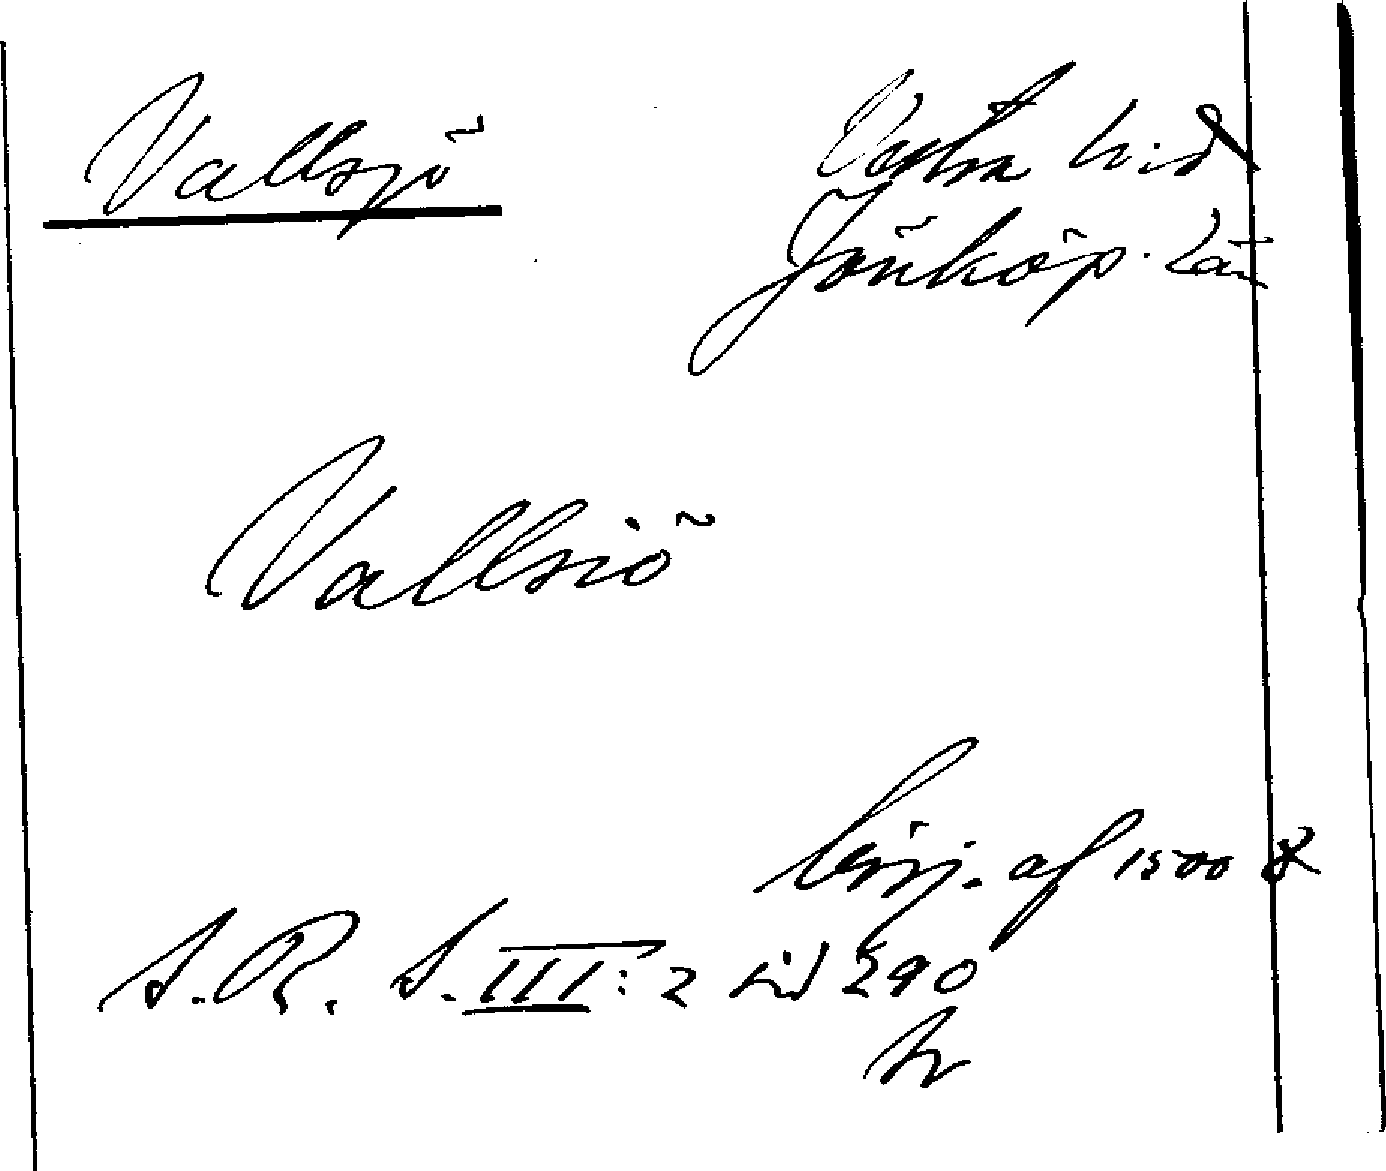 Vallsjö
Västra hd
Jönköp. Län
Vallsiö
börj. af 1500 t
S. R. S. III: 2 sid 290